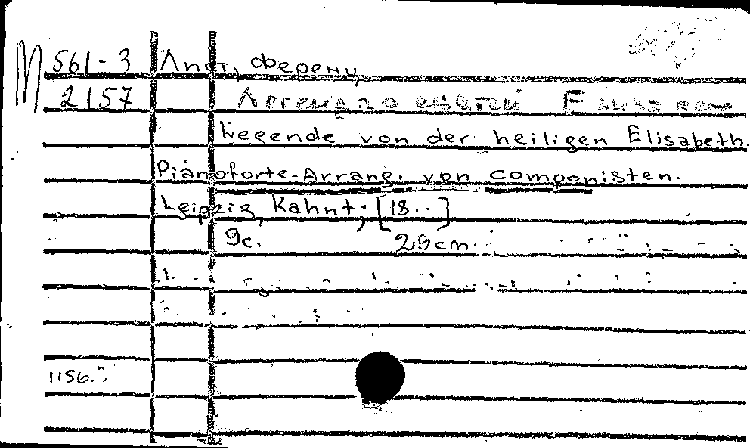 М 561-3 Лист, Ференц
2157 Легенда о святой
Legende von der heiligen Elisabeth.
Pianoforte-Arrang. von Componisten.
Leipzig, Kahnt; [18..]
9c. 28cm.
1156.